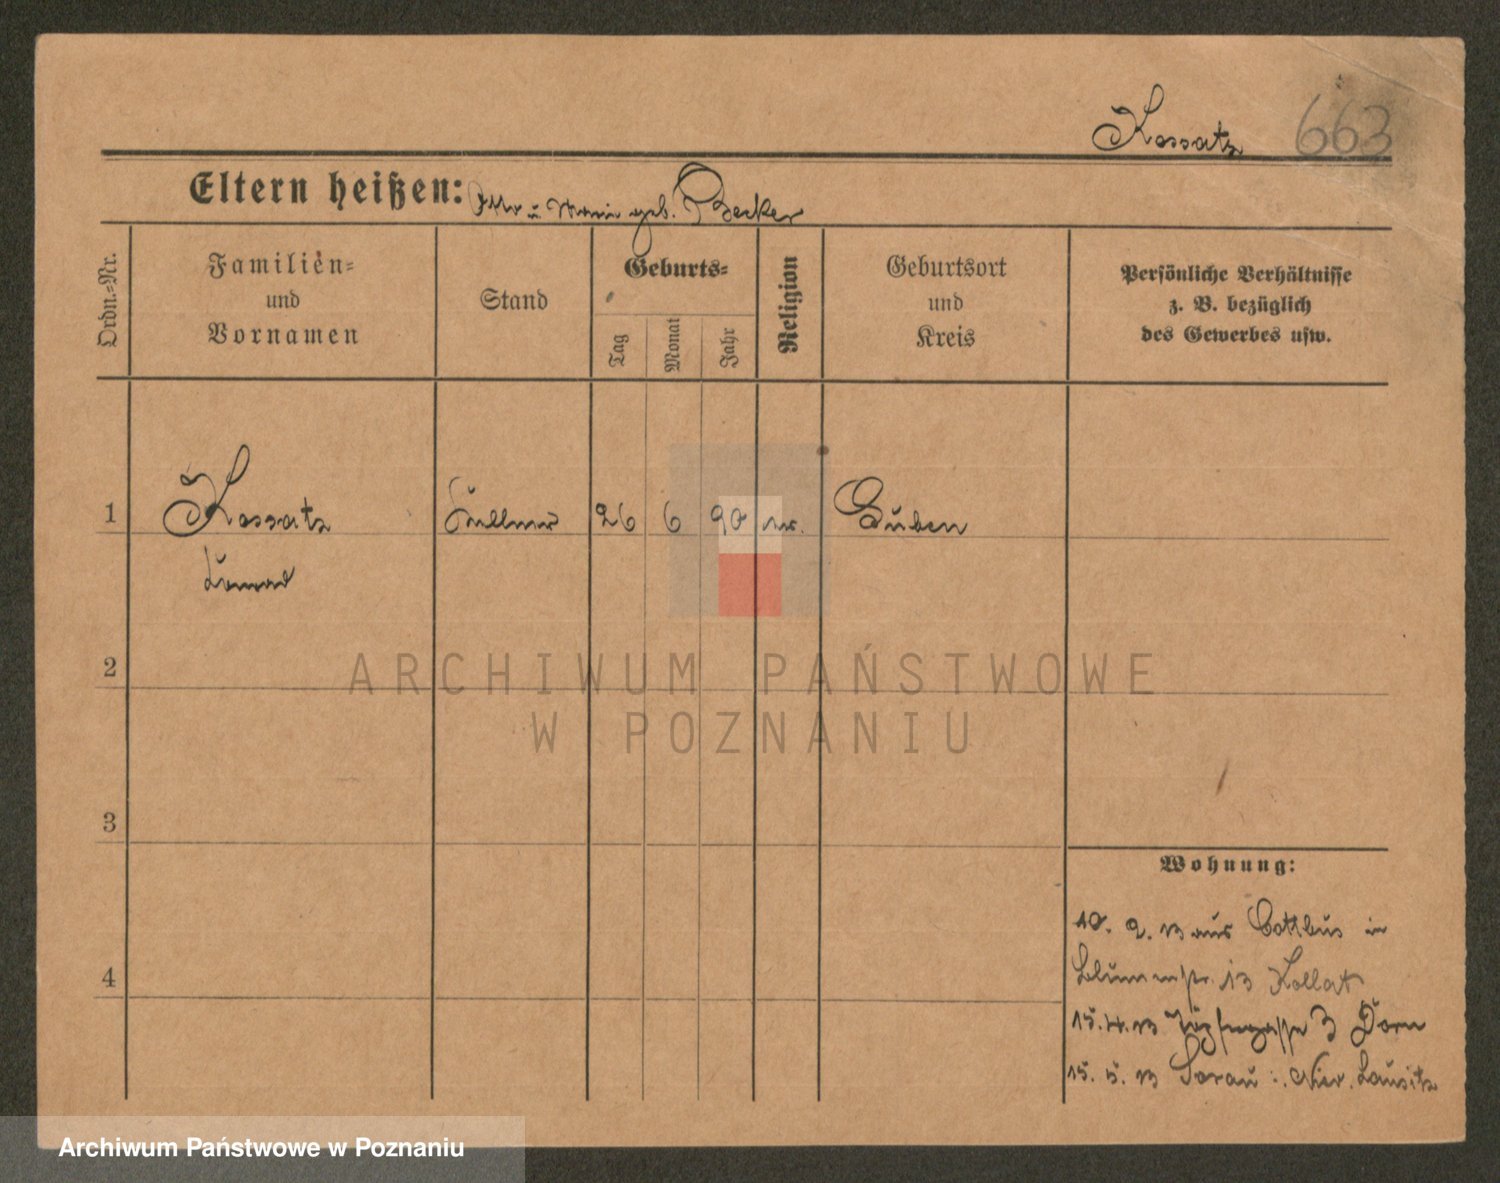 Kossatz 663
Eltern heißen: Otto u. Marie geb. Becker
Ordn.=Nr.
Familien=
und
Vornamen
Stand
Geburts=
Tag
Monat
Jahr
Religion
Geburtsort
und
Kreis
Persönliche Verhältnisse
z. B. bezüglich
des Gewerbes usw.
1 Kossatz Kellner 26 6 90 ev. Guben
Konrad
2
3
4
ARCHIWUM PAŃSTWOWE
W POZNANIU
Wohnung:
10. 2. 13 aus Cottbus in
Blumenstr. 13 Kollat
15. 4. 13 Töpfergasse 3 Dorn
15. 5. 13 Sorau Nied. Lausitz
Archiwum Państwowe w Poznaniu